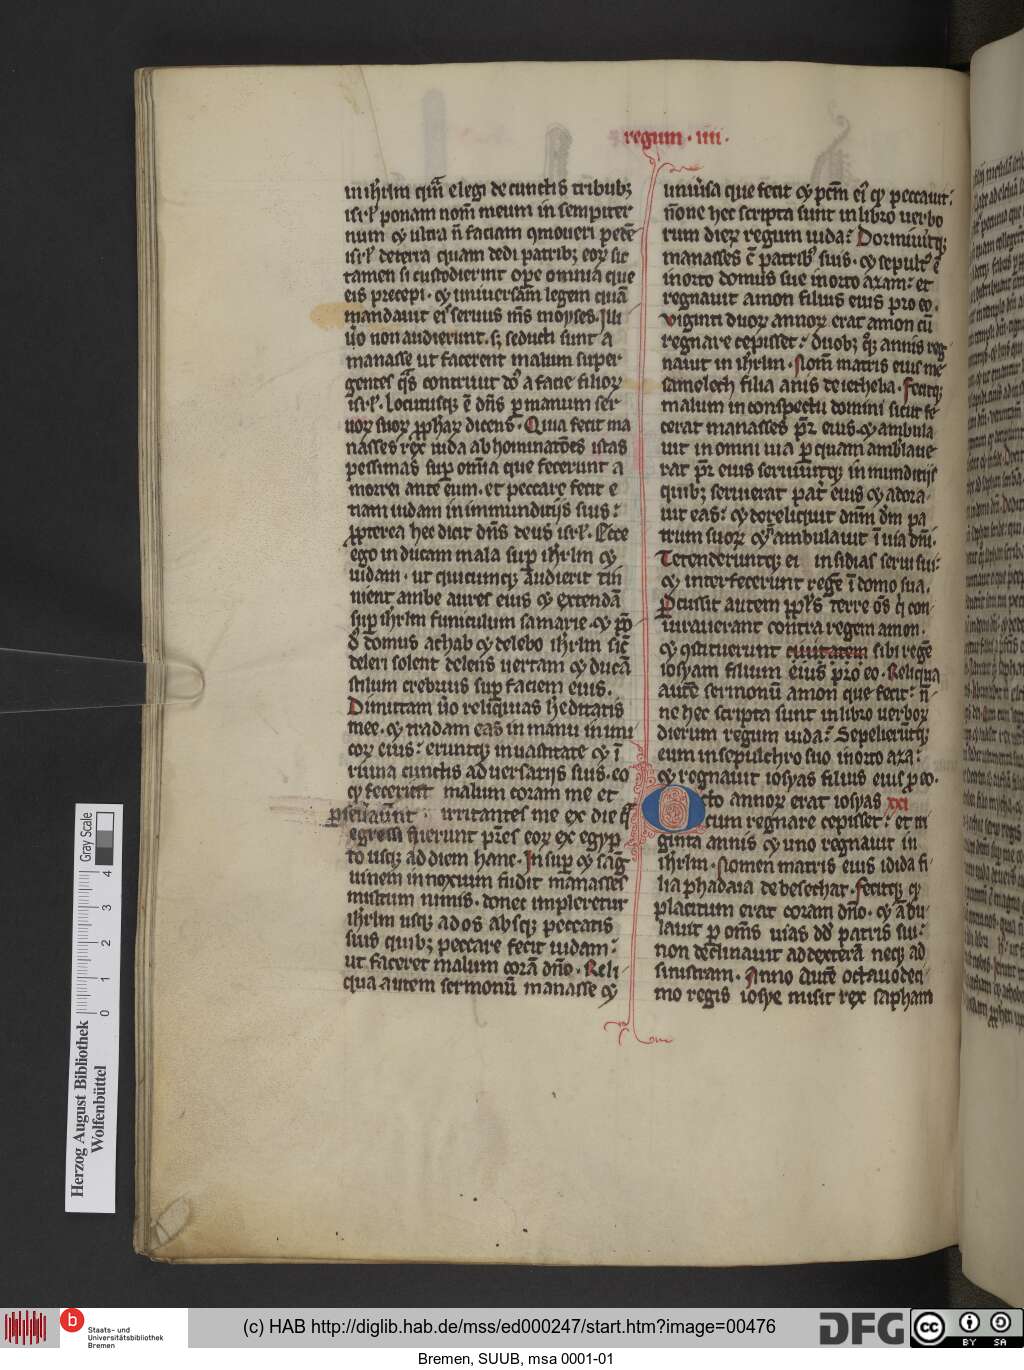 regum · iiii ·
in ihrlm quā elegi de cunctis tribubꝫ
isrl' ponam nom̄ meum in sempiter
num ⁊ ultra ñ faciam ꝯmoueri pedē
isrl' de terra quam dedi patribꝫ eoꝝ sic
tamen si custodierint oꝑe omnia que
eis precepi · ⁊ uniuersam legem quā
mandauit eis seruus m̄s moyses. Illi
ůo non audierunt. sꝫ seducti sunt a
manasse ut facerent malum super
gentes q̄s contriuit dn̄s a facie filioꝝ
isrl'. Locutusqꝫ ē dn̄s ꝑ manum ser
uoꝝ suoꝝ ꝓphaꝝ dicens. Quia fecit ma
nasses rex iuda abhominatōes istas
pessimas suꝑ om̄ia que fecerunt a
morrei ante eum. et peccare fecit e
tiam iudam in immunditijs suis:
ꝓpterea hec dicit dn̄s deus isrl'. Ecce
ego inducam mala suꝑ ihrlm ⁊
iudam. ut quicumqꝫ audierit tin
nient ambe aures eius ⁊ extendā
suꝑ ihrlm funiculum samarie. ⁊ pō
d' domus achab ⁊ delebo ihrlm sic̄
deleri solent delens uertam ⁊ ducā
stilum crebrius suꝑ faciem eius.
Dimittam ůo reliquias heditatis
mee. ⁊ tradam eas in manu inimi
coꝝ eius: eruntqꝫ in uastitate ⁊ ī
rapina cunctis aduersarijs suis. eo
ꝙ fecerint malum coram me et
ꝑseůaūnt · irritantes me ex die q̄
egressi fuerunt pr̄es eoꝝ ex egyp
to usqꝫ ad diem hanc. Insuꝑ ⁊ sāg
uinem innoxium fudit manasses
multum nimis. donec impleretur
ihrlm usqꝫ ad os absqꝫ peccatis
suis quibꝫ peccare fecit iudam:
ut faceret malum corā dn̄o. Reli
qua autem sermonū manasse ⁊
uniůsa que fecit ⁊ pctm̄ ei' ꝙ peccauit:
nōne hec scripta sunt in libro uerbo
rum dieꝝ regum iuda: Dormiuitqꝫ
manasses c̄ patribꝫ suis. ⁊ sepult' ē
in orto domus sue in orto azam: et
regnauit amon filius eius pro eo.
Viginti duoꝝ annoꝝ erat amon cū
regnare cepisset: duobꝫ qꝫ annis reg
nauit in ihrlm. Nom̄ matris eius me
samelech filia anis de ietheba. Fecitqꝫ
malum in conspectu domini sicut fe
cerat manasses pr̄ eius. ⁊ ambula
uit in omni uia ꝑ quam ambl'aue
rat pr̄ eius seruiuitqꝫ inmunditijs
quibꝫ seruierat pat' eius ⁊ adora
uit eas: ⁊ dereliquit dn̄m dm̄ pa
trum suoꝝ ⁊ ñ ambulauit ī uia dn̄i.
Tetenderuntqꝫ ei insidias serui sui:
⁊ interfecerunt regē ī domo sua.
Ꝑcussit autem ppl's terre om̄s qi con
iurauerant contra regem amon.
⁊ ꝯstituerunt ciuitatem sibi regē
iosyam filium eius pro eo. Reliqua
autē sermonū amon que fecit: nō
ne hec scripta sunt in libro uerboꝝ
dierum regum iuda: Sepelierūtqꝫ
eum in sepulchro suo in orto aza:
⁊ regnauit iosyas filius eius ꝓ eo.
Octo annoꝝ erat iosyas xxi
cum regnare cepisset: et tri
ginta annis ⁊ uno regnauit in
ihrlm. Nomen matris eius idida fi
lia phadaia de besechat. Fecitqꝫ ꝙ
placitum erat coram dn̄o. ⁊ ābu
lauit ꝑ om̄s uias dd' patris sui:
non declinauit ad dexterā neqꝫ ad
sinistram. Anno autē octauodeci
mo regis iosye misit rex saphan
Herzog August Bibliothek
Wolfenbüttel
Gray Scale
0 1 2 3 4
b
Staats- und
Universitätsbibliothek
Bremen
(c) HAB http://diglib.hab.de/mss/ed000247/start.htm?image=00476
DFG
cc BY SA
Bremen, SUUB, msa 0001-01